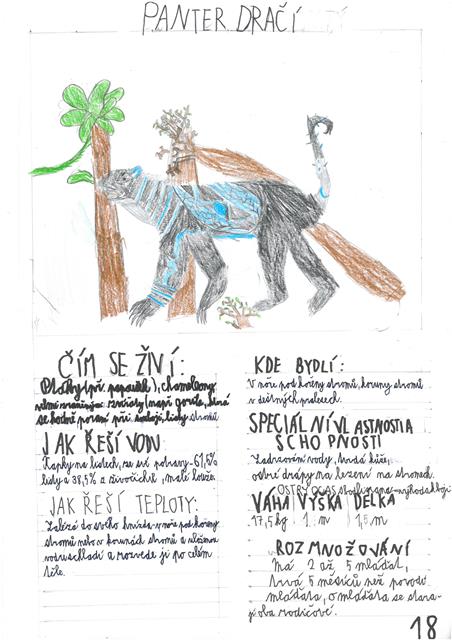 PANTER DRAČÍ
ČÍM SE ŽIVÍ:
Ptáky (př. papoušek), chameleony,
velmi zraněnými zvířaty (např. gorila, která
se hodně poraní při souboji, listy stromů
JAK ŘEŠÍ VODU
Kapky na listech, ze své potravy - 61,5%
listy a 38,5% živočichů, malé louže.
JAK ŘEŠÍ TEPLOTY:
Zalézá do svého hnízda v noře pod kořeny
stromů nebo v korunách stromů a
vodu schladí a rozvede ji po celém
těle.
KDE BYDLÍ:
V noře pod kořeny stromů, koruny stromů
v deštných pralesech.
SPECIÁLNÍ VLASTNOSTI A
SCHOPNOSTI
Zadržování vody, tvrdá kůže,
ostré drápy na lezení na stromech.
OSTRÝ OCAS - výhoda k boji
VÁHA VÝŠKA DÉLKA
17,5 kg 1 m 1,5 m
ROZMNOŽOVÁNÍ
Má 2 až 5 mláďat,
trvá 5 měsíců než porodí
mláďata, o mláďata se stara-
jí oba rodičové.
18